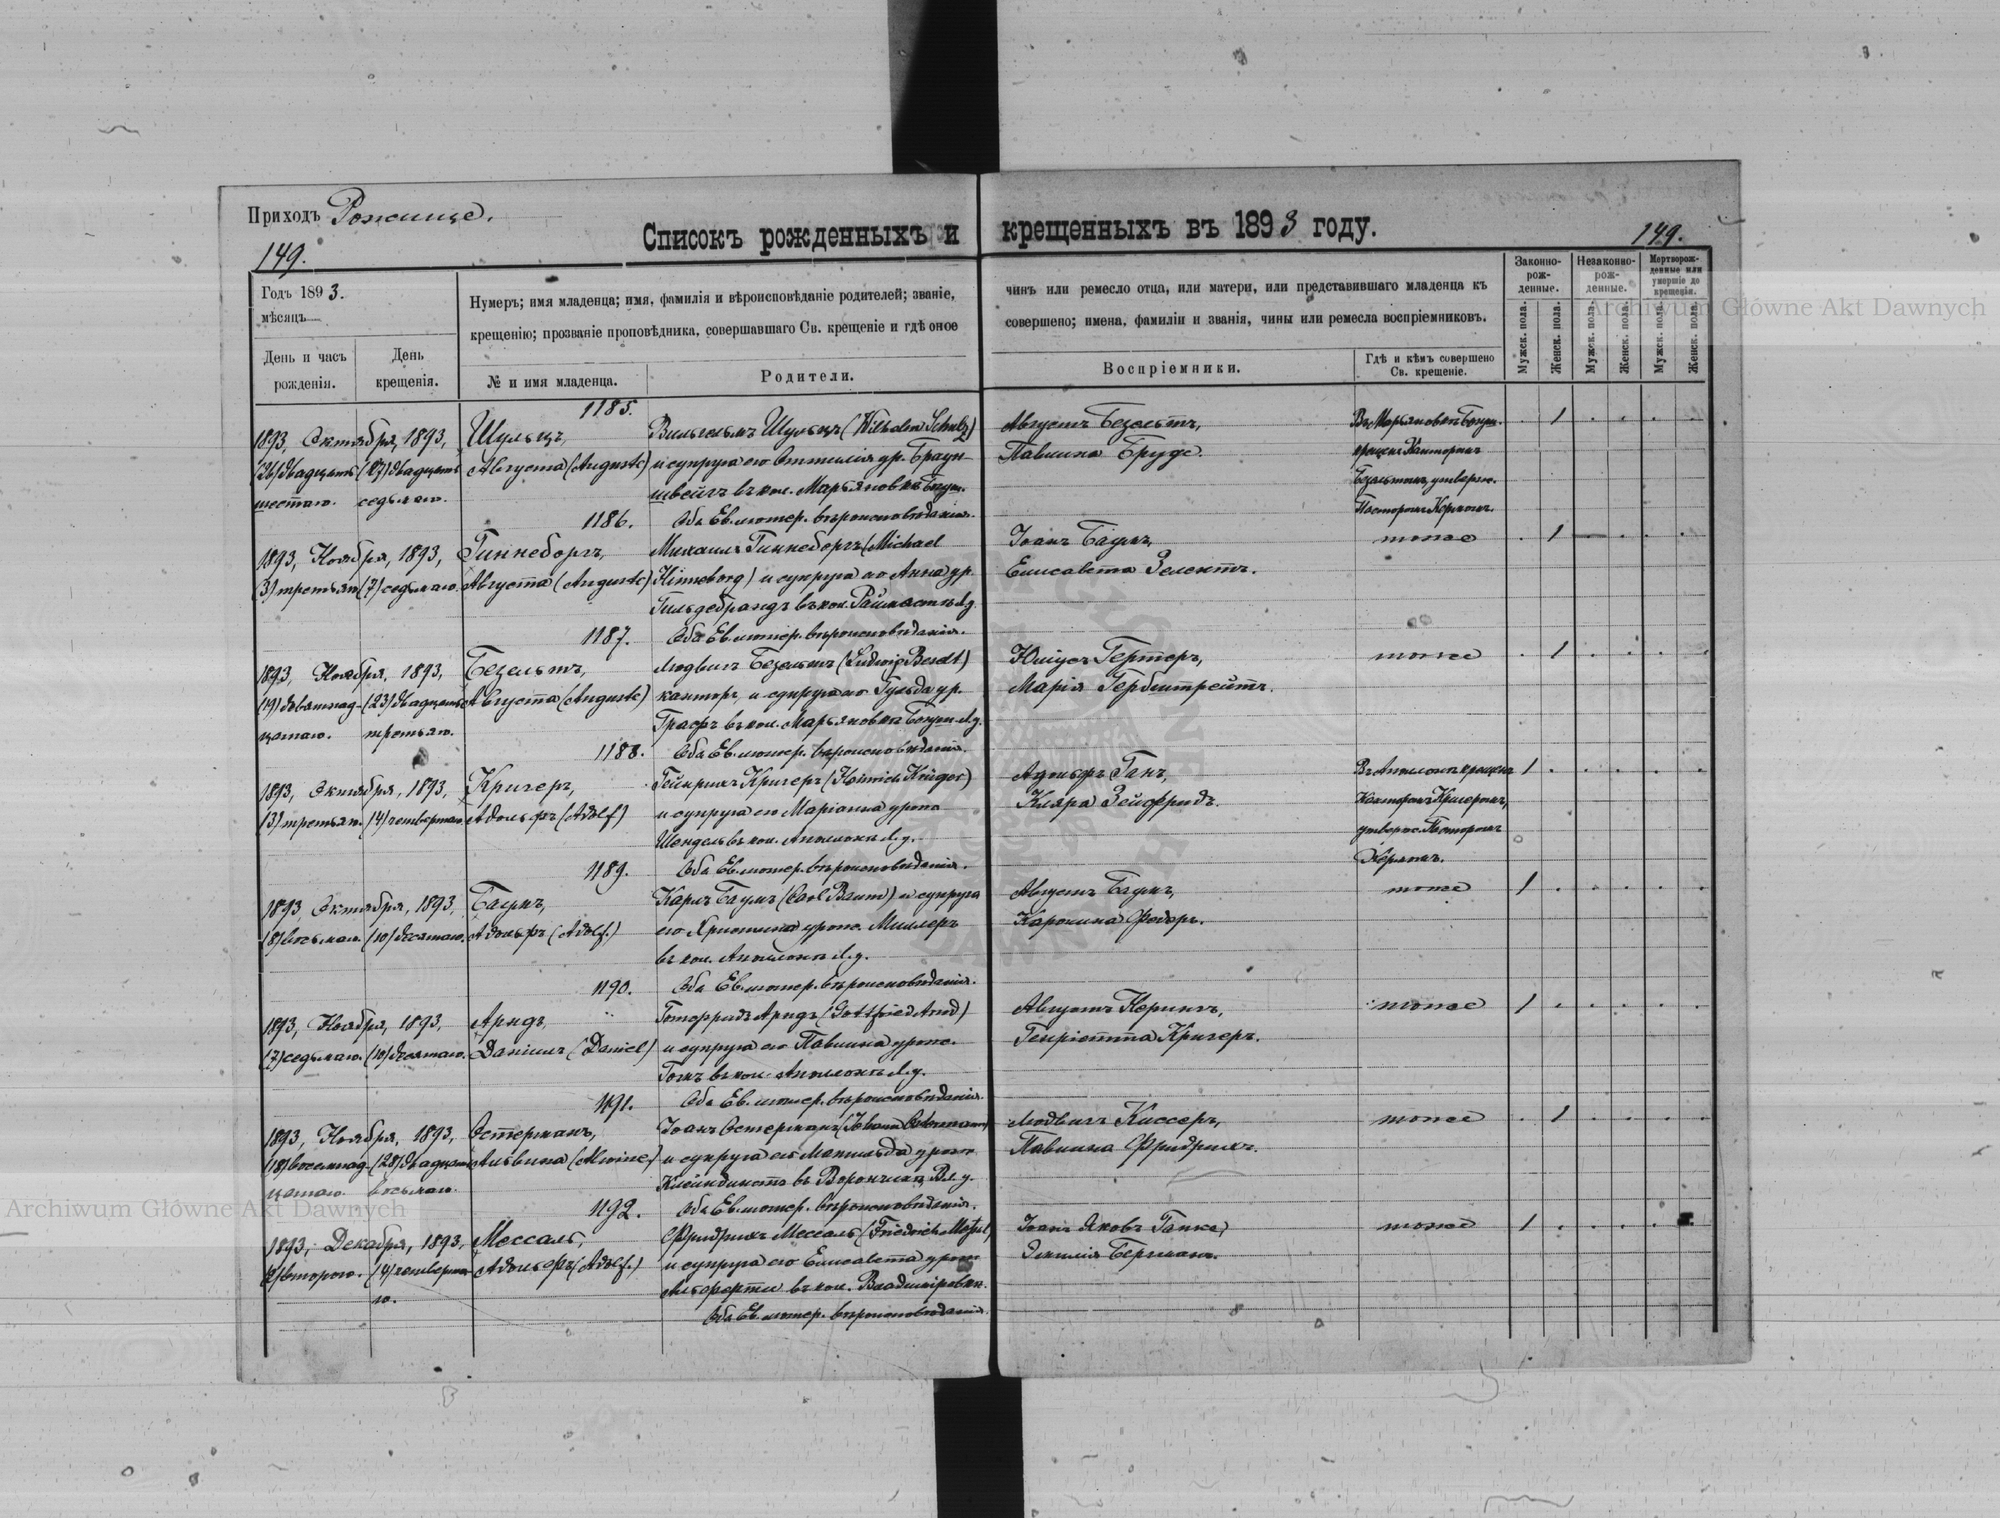 Приходъ Рожище.
149.
Списокъ рожденныхъ и крещенныхъ въ 1893 году.
149.
Годъ 1893.
мѣсяцъ
День и часъ рожденія.
День крещенія.
Нумеръ; имя младенца; имя, фамилія и вѣроисповѣданіе родителей; званіе, чинъ или ремесло отца, или матери, или представившаго младенца къ
крещенію; прозваніе проповѣдника, совершавшаго Св. крещеніе и гдѣ оное совершено; имена, фамиліи и званія, чины или ремесла воспріемниковъ.
№ и имя младенца.
Родители.
Воспріемники.
Гдѣ и кѣмъ совершено Св. крещеніе.
Законно-рож-денные.
Незаконно-рож-денные.
Мертворож-денные или умершіе до крещенія.
Мужск. пола.
Женск. пола.
Мужск. пола.
Женск. пола.
Мужск. пола.
Женск. пола.
1185.
1893, Октября, 1893,
(26) двадцать шестаго.
(27) двадцать седьмаго.
Шульцъ,
Августа (Auguste)
Вильгельмъ Шульцъ (Wilhelm Schulz)
и супруга его Оттилія ур. Браун-
швейгъ въ кол. Марьяновка Божуи.
Оба Ев. лютер. вѣроисповѣданія.
Августъ Безельтъ,
Павлина Бруде.
Въ Марьяновкѣ
крещенъ Канторомъ
Безельтомъ, утвержд.
Пасторомъ Керномъ.
1
1186.
1893, Ноября, 1893,
(3) третьяго
(7) седьмаго.
Гиннеборгъ,
Августа (Auguste)
Михаилъ Гиннеборгъ (Michael
Hinneborg) и супруга его Анна ур.
Гильдебрандъ въ кол.
Оба Ев. лютер. вѣроисповѣданія.
Іоанъ Баумъ,
Елисавета Зелентъ.
тоже
1
1187.
1893, Ноября, 1893,
(19) девятнад-
цатаго.
(23) двадцать
третьяго.
Безельтъ,
Августа (Auguste)
Людвигъ Безельтъ (Ludwig Beselt)
канторъ, и супруга его Гульда ур.
Графъ въ кол. Марьяновка Л.у.
Оба Ев. лютер. вѣроисповѣданія.
Юліусъ Гертеръ,
Марія Гербштрейтъ.
тоже
1
1188.
1893, Октября, 1893,
(3) третьяго.
(4) четвертаго.
Кригеръ,
Адольфъ (Adolf)
Гейнрихъ Кригеръ (Heinrich Krüger)
и супруга его Маріанна урожд.
Шендель въ кол. Аполонкѣ Л.у.
Оба Ев. лютер. вѣроисповѣданія.
Адольфъ Ганъ,
Клара Зейфридъ.
Въ Аполонкѣ крещенъ
Канторомъ Кригеромъ,
утвержд. Пасторомъ
Керномъ.
1
1189.
1893, Октября, 1893,
(8) восьмаго.
(10) десятаго.
Баумъ,
Адольфъ (Adolf.)
Карлъ Баумъ (Carl Baum) и супруга
его Христина урожд. Миллеръ
въ кол. Аполонкѣ Л.у.
Оба Ев. лютер. вѣроисповѣданія.
Августъ Баумъ,
Каролина Федоръ.
тоже
1
1190.
1893, Ноября, 1893,
(7) седьмаго.
(10) десятаго.
Арндъ,
Даніилъ (Daniel)
Готфридъ Арндъ (Gottfried Arnd)
и супруга его Павлина урожд.
Гомъ въ кол. Аполонкѣ Л.у.
Оба Ев. лютер. вѣроисповѣданія.
Августъ Керингъ,
Генріетта Кригеръ.
тоже
1
1191.
1893, Ноября, 1893,
(18) восемнад-
цатаго.
(28) двадцать
восьмаго.
Остерманъ,
Альвина (Alwine)
Іоанъ Остерманъ (Johann Ostermann)
и супруга его Матильда урожд.
Клейндинстъ въ Ворончинѣ, Вл.у.
Оба Ев. лютер. вѣроисповѣданія.
Людвигъ Кисслеръ,
Павлина Фридрихъ.
тоже
1
1192.
1893, Декабря, 1893,
(2) втораго.
(4) четверта-
го.
Мессаль,
Адольфъ (Adolf.)
Фридрихъ Мессаль (Friedrich Mesal)
и супруга его Елисавета урожд.
въ кол. Владиміровкѣ.
Оба Ев. лютер. вѣроисповѣданія.
Іоанъ Яковъ Ганке,
Эмилія Бергманъ.
тоже
1
Archiwum Główne Akt Dawnych
Archiwum Główne Akt Dawnych